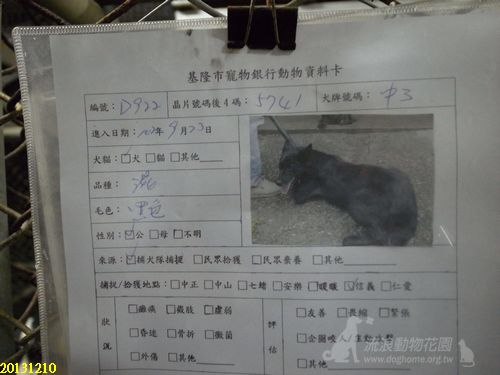 基隆市寵物銀行動物資料卡
編號: D922 晶片號碼後4碼: 5741 犬牌號碼: 中3
進入日期: 102年9月23日
犬貓: □犬 □貓 □其他
品種: 混
毛色: 黑色
性別: ☑公 □母 □不明
來源: ☑捕犬隊捕捉 □民眾拾獲 □民眾棄養 □其他
捕捉/拾獲地點: □中正 □中山 □七堵 □安樂 □暖暖 ☑信義 □仁愛
狀況 □癱瘓 □截肢 □虛弱 評估 □友善 □畏縮 □緊張
□昏迷 □骨折 □黴菌 □企圖咬人/主動攻擊
□外傷 □其他 □其他
流浪動物花園
www.doghome.org.tw
20131210